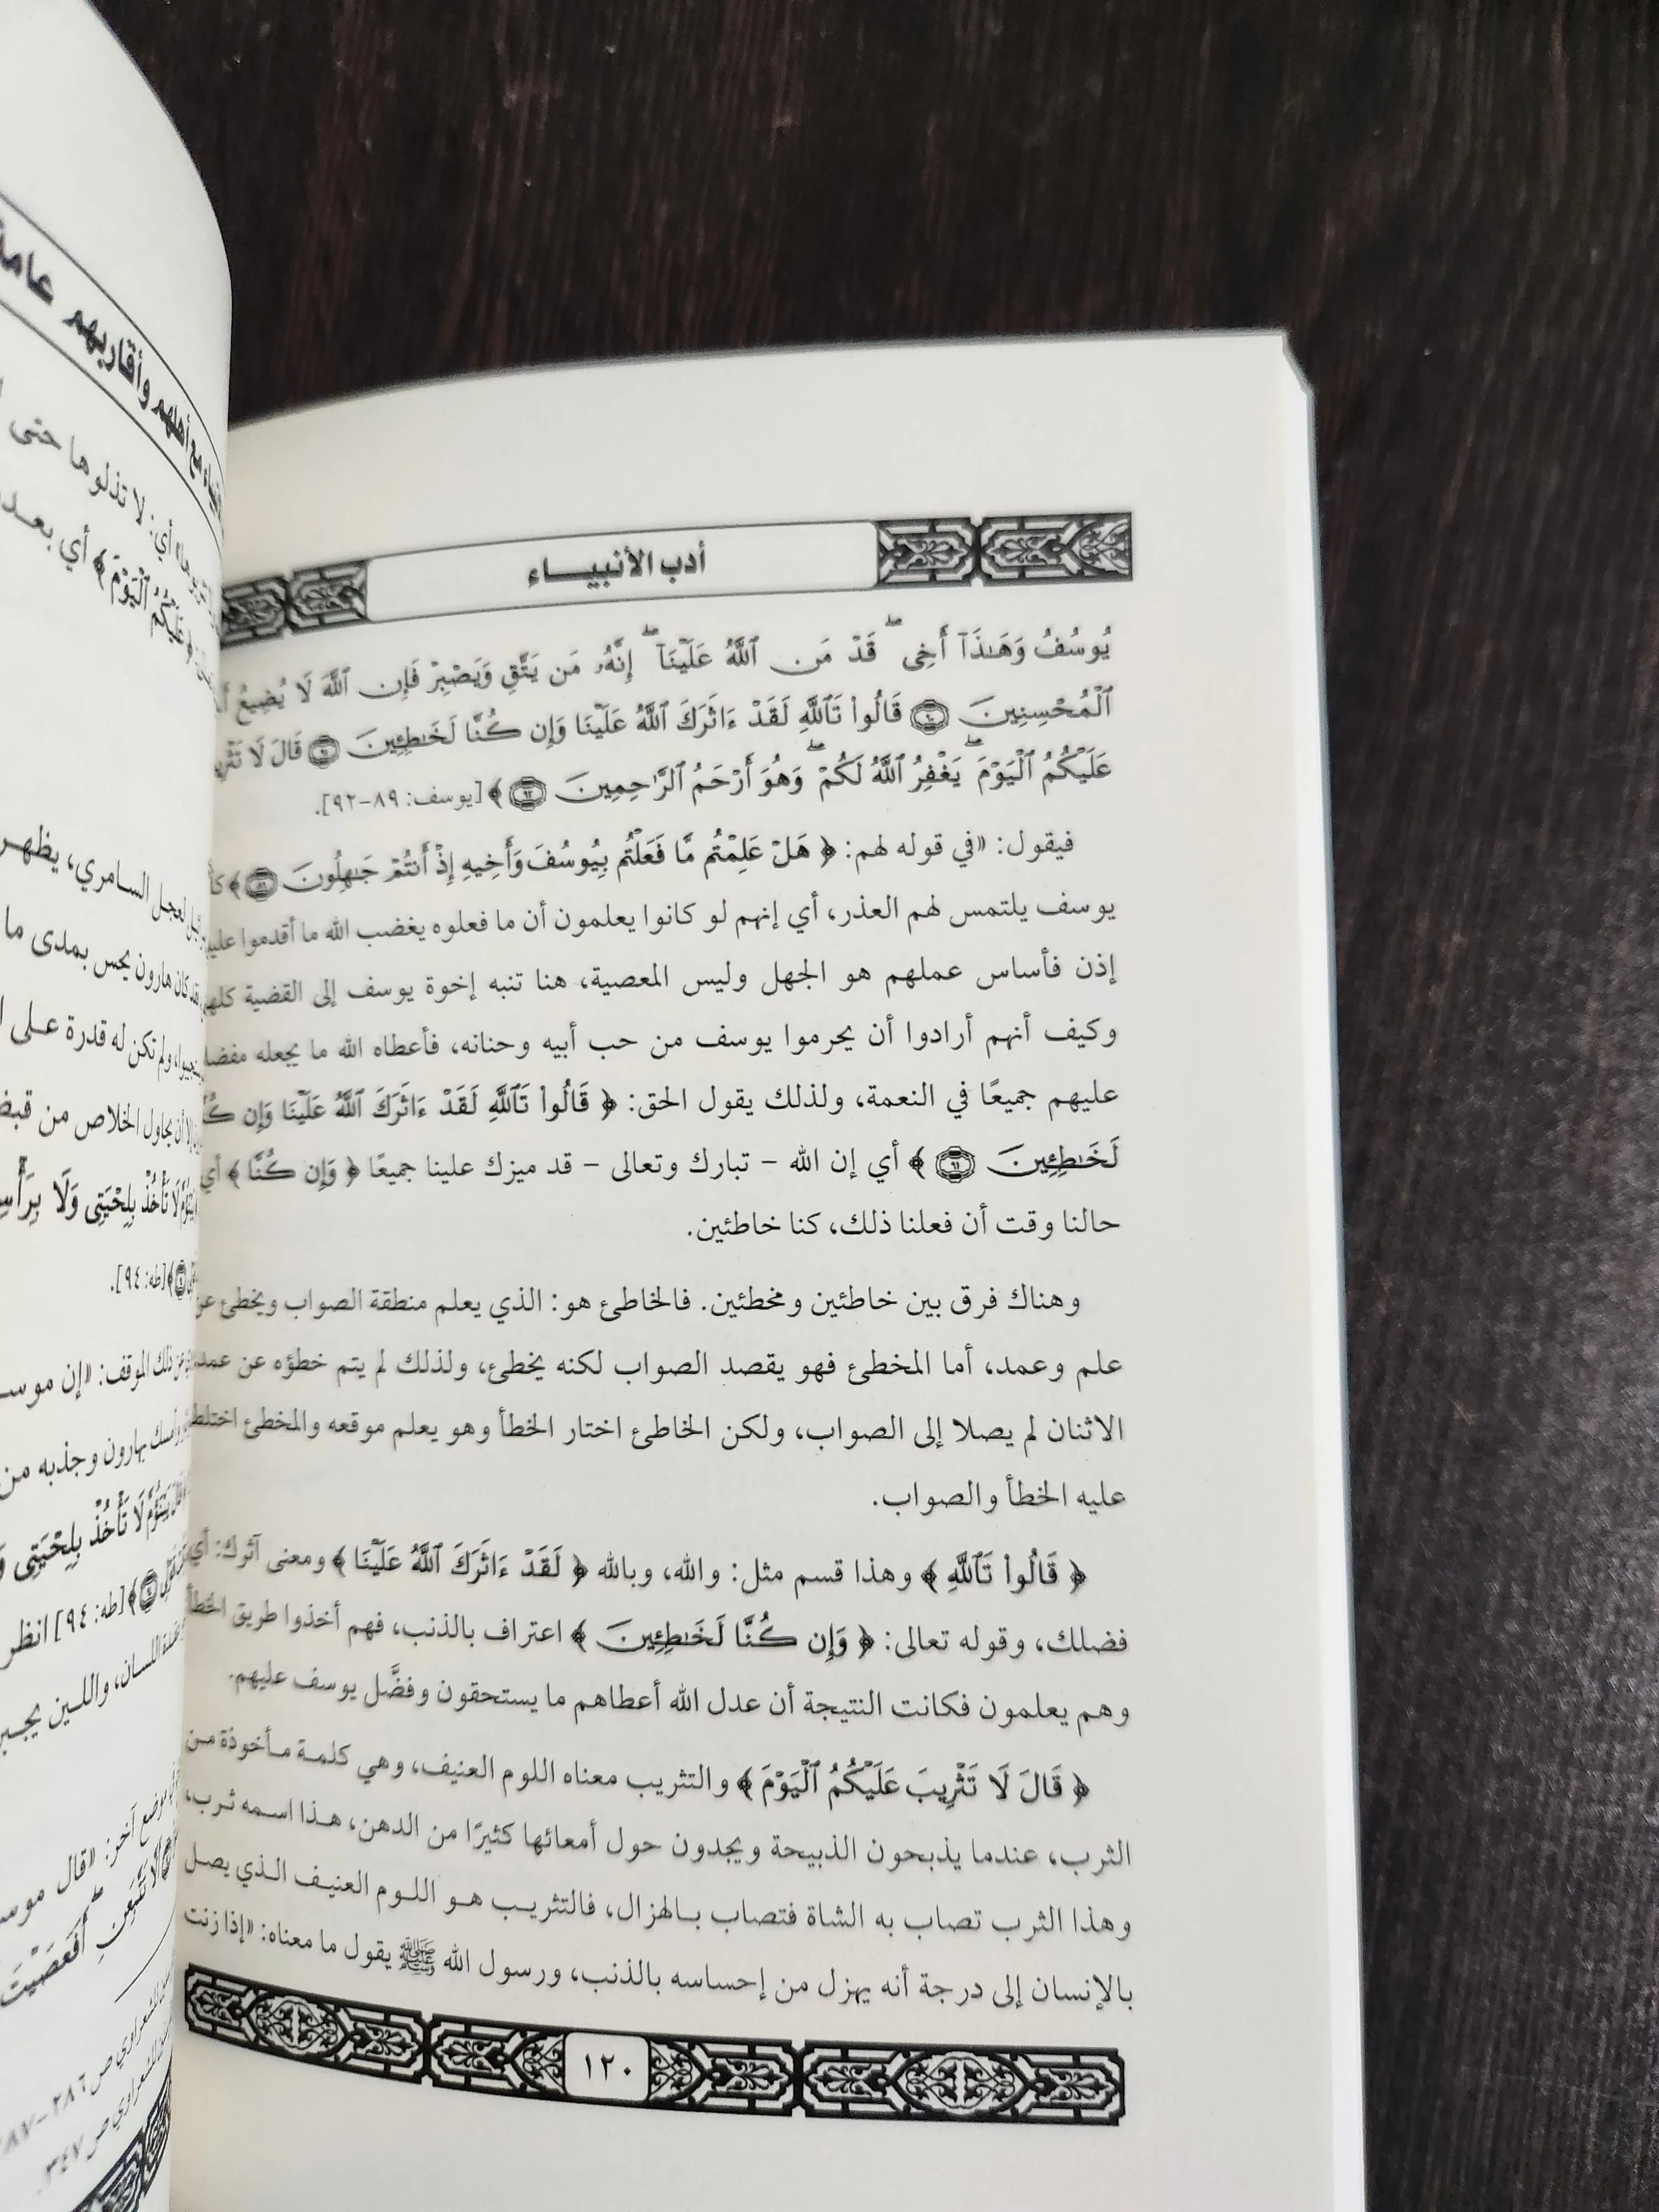 أدب الأنبيـــاء
يُوسُفُ وَهَٰذَآ أَخِى ۖ قَدْ مَنَّ ٱللَّهُ عَلَيْنَآ ۖ إِنَّهُۥ مَن يَتَّقِ وَيَصْبِرْ فَإِنَّ ٱللَّهَ لَا يُضِيعُ
ٱلْمُحْسِنِينَ ۝ قَالُوا۟ تَٱللَّهِ لَقَدْ ءَاثَرَكَ ٱللَّهُ عَلَيْنَا وَإِن كُنَّا لَخَـٰطِـِٔينَ ۝ قَالَ لَا
عَلَيْكُمُ ٱلْيَوْمَ ۖ يَغْفِرُ ٱللَّهُ لَكُمْ ۖ وَهُوَ أَرْحَمُ ٱلرَّٰحِمِينَ ۝٩٢ ﴾ [يوسف: ٨٩-٩٢].
فيقول: «في قوله لهم: ﴿ هَلْ عَلِمْتُم مَّا فَعَلْتُم بِيُوسُفَ وَأَخِيهِ إِذْ أَنتُمْ جَـٰهِلُونَ ۝ ﴾
يوسف يلتمس لهم العذر، أي إنهم لو كانوا يعلمون أن ما فعلوه يغضب الله ما أقدموا
إذن فأساس عملهم هو الجهل وليس المعصية، هنا تنبه إخوة يوسف إلى القضية كلها
وكيف أنهم أرادوا أن يحرموا يوسف من حب أبيه وحنانه، فأعطاه الله ما يجعله مفضلا
عليهم جميعًا في النعمة، ولذلك يقول الحق: ﴿ قَالُوا۟ تَٱللَّهِ لَقَدْ ءَاثَرَكَ ٱللَّهُ عَلَيْنَا وَإِن
لَخَـٰطِـِٔينَ ۝٩١ ﴾ أي إن الله – تبارك وتعالى – قد ميزك علينا جميعًا ﴿ وَإِن كُنَّا ﴾ أي
حالنا وقت أن فعلنا ذلك، كنا خاطئين.
وهناك فرق بين خاطئين ومخطئين. فالخاطئ هو: الذي يعلم منطقة الصواب ويخطئ عن
علم وعمد، أما المخطئ فهو يقصد الصواب لكنه يخطئ، ولذلك لم يتم خطؤه عن عمد،
الاثنان لم يصلا إلى الصواب، ولكن الخاطئ اختار الخطأ وهو يعلم موقعه والمخطئ اختلط
عليه الخطأ والصواب.
﴿ قَالُوا۟ تَٱللَّهِ ﴾ وهذا قسم مثل: والله، وبالله ﴿ لَقَدْ ءَاثَرَكَ ٱللَّهُ عَلَيْنَا ﴾ ومعنى آثرك: أي
فضلك، وقوله تعالى: ﴿ وَإِن كُنَّا لَخَـٰطِـِٔينَ ﴾ اعتراف بالذنب، فهم أخذوا طريق الخطأ
وهم يعلمون فكانت النتيجة أن عدل الله أعطاهم ما يستحقون وفضَّل يوسف عليهم.
﴿ قَالَ لَا تَثْرِيبَ عَلَيْكُمُ ٱلْيَوْمَ ﴾ والتثريب معناه اللوم العنيف، وهي كلمة مأخوذة من
الثرب، عندما يذبحون الذبيحة ويجدون حول أمعائها كثيرًا من الدهن، هذا اسمه ثرب،
وهذا الثرب تصاب به الشاة فتصاب بالهزال، فالتثريب هو اللوم العنيف الذي يصل
بالإنسان إلى درجة أنه يهزل من إحساسه بالذنب، ورسول الله ﷺ يقول ما معناه: «إذا زنت
١٢٠
أهلهم وأقاربهم عامة
أي: لا تذلوها حتى
عَلَيْكُمُ ٱلْيَوْمَ ﴾ أي بعد
لعجل السامري، يظهر
كان هارون يحس بمدى ما
ولم تكن له قدرة على
أن يحاول الخلاص من
لَا تَأْخُذْ بِلِحْيَتِى وَلَا
[طه: ٩٤].
ذلك الموقف: «إن
بهارون وجذبه من
لَا تَأْخُذْ بِلِحْيَتِى
[طه: ٩٤] انظر
اللسان، واللين
موضع آخر: «قال
أَفَعَصَيْتَ
للشعراوي ص ٢٨٦-
للشعراوي ص ٣٤٧.